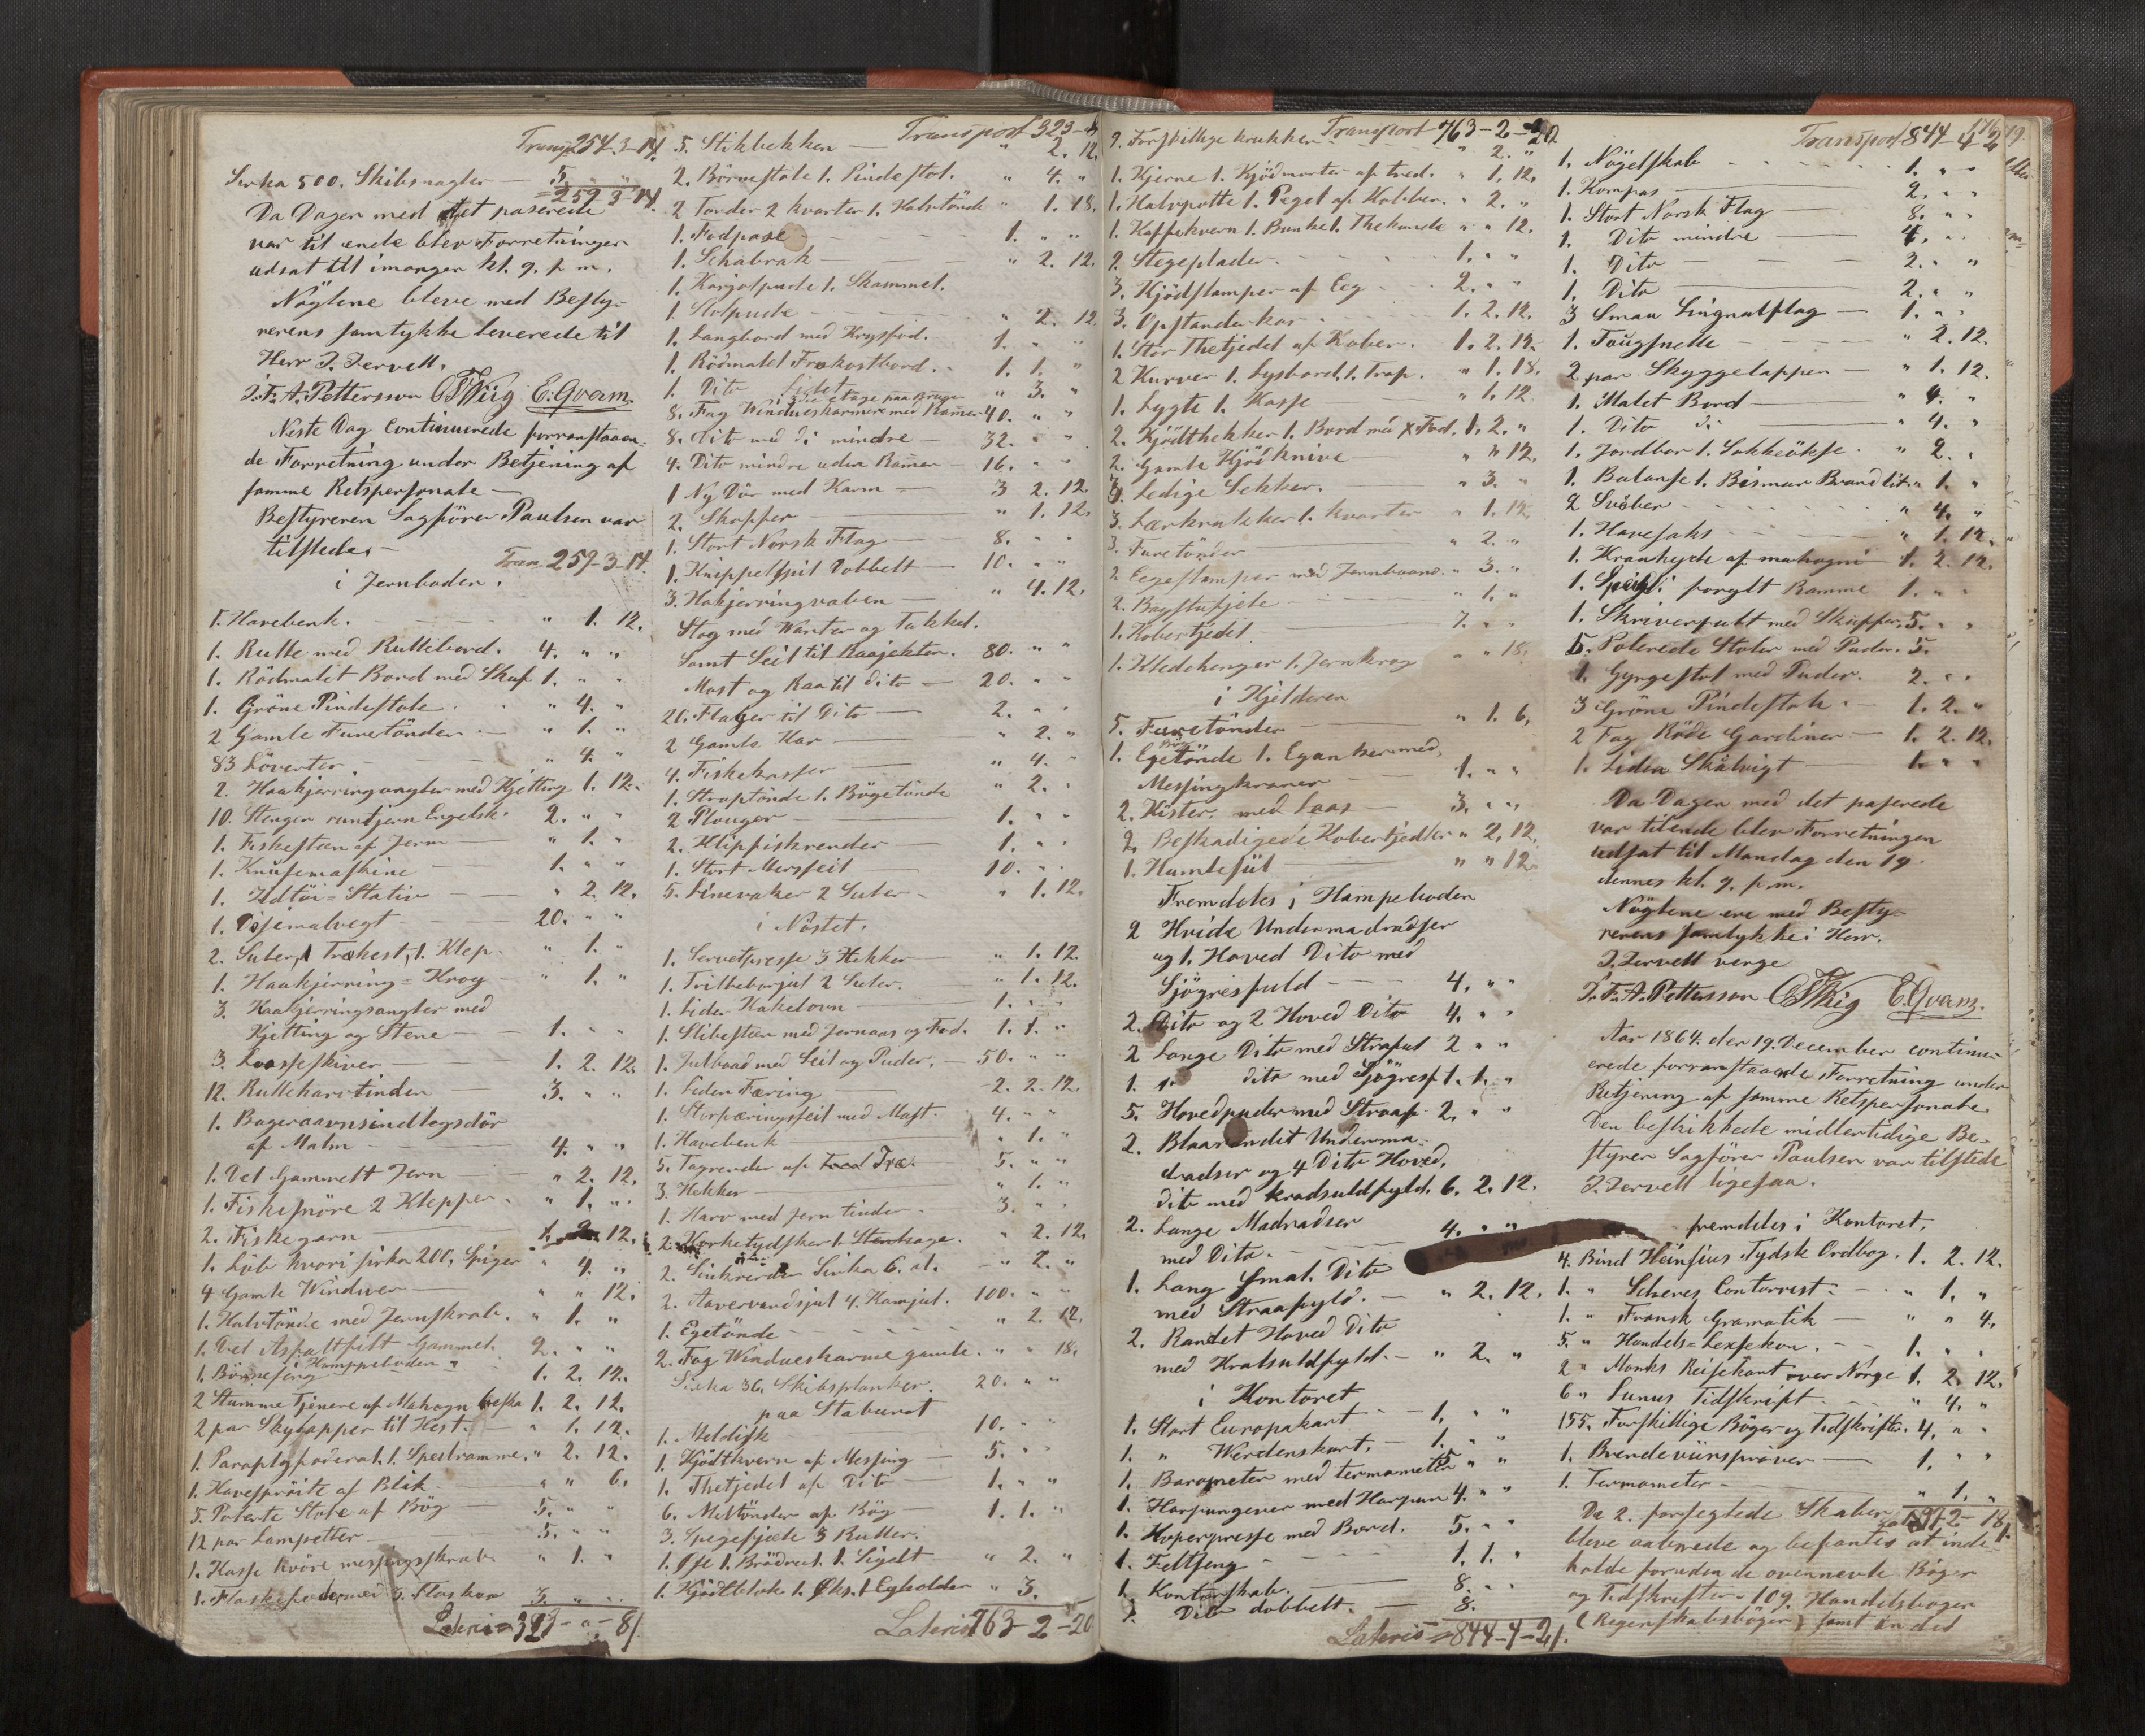 Transp 254.3.14.
Sirka 500. Skibsnagler — 5. " "
259 3 14.
Da Dagen med det paserede
var til ende blev Forretningen
udsat till imorgen kl. 9. f m.
Nöglene bleve med Besty-
rerens samtykke leverede til
Herr J. Jervell.
J. F. A. Pettersson E. Qvam.
Neste Dag Continuerede forranstaaen-
de Forretning under Betjening af
samme Retspersonale —
Bestyreren Sagförer Paulsen var
tilstede. —
Tran 259-3-14.
i Jernboden.
1. Havebenk. " 1. 12.
1. Rulle med Rullebord. 4. " "
1. Rödmalet Bord med Skuf 1. " "
1. Gröne Pindestole. " 4. "
2 Gamle Furetönder — " 1. "
83 Löverter. " 4. "
2. Haakjerringangler med Kjetting 1. 12.
10. Stenger runtjern Engelsk. 2. " "
1. Fiskesteen af Jern — " 1. "
1. Knusemaskine 1. " "
1. Ildtöi-Stativ — " 2. 12.
1. Disemalvegt — 20. " "
2. Suler, 1 Trækest, 1. Klep. " 1. "
1. Haakjerring-Krog — " 1. "
3. Haakjerringsangler med
Kjetting og Stene — 1. " "
3. Laasseskiver — 1. 2. 12.
12. Rulleharvtinder — 3. " "
1. Bageraavnsindlagsdör
af Malm — 4. " "
1. Del Gammelt Jern — " 2. 12.
1. Fiskesnöre 2 Klepper. " 1. "
2. Fiskegarn — 12.
1. Löb hvori sirka 200. Spiger " 4. "
4 Gamle Winduer — " " 12.
1. Halvtönde med Jernskrab. " 1. "
1. Del Asfaltfilt Gammel. 2. " "
Hamppeboden
1. Börneseng 1. 2. 12.
2 Stumme Tjenere af Mahogn 1. 2. 12.
2 par Skylapper til Hest. — " 1. 12.
1. Paraplyfoderal. 1. Speilramme. " 2. 12.
1. Havespröite af Blik — " " 6.
5. Polerte Stole af Bög — 5. " "
12 par Lampetter — 5. " "
1. Kasse hvöri messingsskrab. " 1. "
1. Flaskefoder med 5. Flasker 3. " "
Lateris 323 - " - 8/
Transport 323-8
5. Stikbekken — " 2. 12.
2. Börnestole 1. Pindestol. " 4. "
2 Tönder 2 kvarter 1. Halvtönde " 1. 18.
1. Fodpose — 1. " "
1. Schabrak — " 2. 12.
1. Karjolpude 1. Skammel.
1. Stolpude — " 2. 12
1. Langbord med Krysfod. 1. " "
1. Rödmalet Frokostbord. 1. 1. "
1. Dito Lidet " 3. "
8. Fag Windueskarmer med Ramer 40. " "
8. dito med di mindre — 32. " "
4. Dito mindre uden Ramer — 16. " "
1 Ny Dör med Karm — 3 2. 12
2. Skuffer — " 1. 12.
1. Stort Norsk Flag — 8. " "
1. Knippelspil Dobbelt — 10. " "
3. Hakjerringvaben — " 4. 12.
Stag med Wanter og Takkel.
Samt Seil til Raajekten. 80. " "
Mast og Raa til dito — 20. " "
20. Flager til Dito — 2. " "
2 Gamle Kar — " 2. "
4. Fiskekasser — " 4. "
1. Straptönde 1. Bögetönde " 2. "
2 Plouger — 1. " "
2. Klipfiskrender — 1. " "
1. Stort Mersseil — 10. " "
5. Linevaker 2 Suler — " 1. 12.
i Nöstet.
1. Servetpresse 3 Hekker — " 1. 12.
1. Trillebörjul 2 Suler. — " 1. 12.
1. Liden Kakelovn — 1. " "
1. Slibesteen med Jernaas og Fod. 1. 1. "
1. Julbaad med Seil og Puder. — 50. " "
1. Liden Færing — 2. 2. 12.
1. Storfæringsseil med Mast. 4. " "
1. Havebenk — " 1. "
5. Tagrender af Træ. 5. " "
3. Hekker — " 1. "
1. Harv med Jern tinder. 3. " "
2. Korketydsker 1. Stenhage. " 2. 12.
2. Sinkrender Sirka 6. al. — " 2. "
2. Aavervandsjul 4. Kamjul. 100. " "
1. Egetönde — " 2. 12.
2. Fag Windueskarme gamle. " " 18.
Sirka 36. Skibsplanker. 20. " "
paa Staburet
1. Meldisk — 10. " "
1. Kjödtkvern af Messing 5. " "
1. Thekjedel af Dito 1. " "
6. Meltönder af Bög 1. 1. "
3. Spegefjæle 3 Butter.
1. Öse 1. Brödreel. 1. Sigdt " 2. "
1. Kjödtblok 1. Öks. 1 Egholder " 3.
Lateris 763-2-20
Transport 763-2-20
9. Forskillige krukker " 2. "
1. Kjerne 1. Kjödmorter af tred. " 1. 12.
1. Halvpotte 1. Pegel af Kobber. " 2. "
1. Kaffekvern 1. Bunke 1. Thekande " " 12.
2. Stegeplader. — 1. " "
3. Kjödstamper af Eeg — 2. " "
3. Opstander kar — 1. 2. 12.
1. Stor Thekjedel af Kober. 1. 2. 12.
2 Kurver 1. Lysbord, 1. Trap. " 1. 18.
1. Lygte 1. Kasse " 1. 12
2. Kjödthekker 1. Bord md x Fod. 1. 2. "
2. Gamle Kjödknive " " 12.
Ledige Sekker. — " 3. "
3. Lærkrukker 1. kvarter " 1. 12.
3. Furetönder — " 2. "
2 Egestamper med Jernbaand. " 3. "
2. Bagstufjele — " 1. "
1. Kobertjedel 7. " "
1. Kledehenger 1. Jernkrog " " 18.
i Kjelderen
5. Furetönder — " 1. 6.
1. Egetönde 1. Egan ker med
Messingkraner — 1. " "
2. Kister. med Laas — 3. " "
2. Beskadigede Kobertjedler " 2. 12.
1. Humlesüt " " 12.
Fremdeles i Hampeboden
2 Hvide Undermadradser
og 1. Hoved Dito med
Sjögresfuld — 4. " "
2. Dito og 2 Hoved Dito 4. " "
2 Lange Dito med Straful 2 " "
1. dito med Sjögresf 1. 1. "
5. Hovedpuder med Straaf. 2. " "
2. Blaarandet Underma-
dradser og 4 Dito Hoved,
dito med kradsuldfyld. 6. 2. 12.
2. Lange Madradser
med Dito. — 4. " "
1. Lang Smal. Dito
med Straafyld. — " 2. 12.
2. Randet Hoved Dito
med Kratsuldfyld. — " 2. "
i Kontoret
1. Stort Europakart — 1. " "
1. " Werdenskart. — 1. " "
1. Barometer med termometer 5 " "
1. Harpungever med Harpun 4. " "
1. Koperpresse med Bord. 5. " "
1. Feltseng — 1. 1. "
1. Kontorskab. — 8. " "
1. Dito dobbelt. — 8.
Lateris 844-4-2/.
176
Transport 844-4 2
1. Nögelskab — 1. " "
1. Kompas — 2. " "
1. Stort Norsk Flag — 8. " "
1. Dito mindre — 4. " "
1. Dito — 2. " "
1. Dito — 2. " "
3 Smaa Singnalflag — 1. " "
1. Faugsnelle — " 2. 12.
2 par Skyggelapper — " 1. 12.
1. Malet Bord — " 4. "
1. Dito di — " 4. "
1. Jordbor 1. Sukkeröxe. " 2. "
1. Balanse 1. Bismar Brand lit. " 1. "
2 Svöber — " 4. "
1. Havesaks — " 1. 12.
1. Kranhyde af mahogni 1. 2. 12.
1. Speil i forgylt Ramme 1. " "
1. Skriverpult med Skuffer. 5. " "
5. Polerede Stoler med Puder. 5.
1. Gyngestol med Puder. 2. " "
3 Gröne Pindestole. — 1. 2. "
2 Fag Röde Gardiner — 1. 2. 12.
1. Liden Skålvigt — 1. " "
Da Dagen med det paserede
var tilende blev Forretningen
udsat til Mandag den 19.
dennes kl. 9. f. m.
Nöglene ere med Besty-
rerens samtykke i Herr.
J. Jervell verge
J. F. A. Pettersson E. Qvam.
Aar 1864. den 19. December continu-
erede forranstaaende Forretning under
Betjening af samme Retspersonale
Den beskikkede midlertidige Be-
styrer Sagförer Paulsen var tilstede
J. Jervell ligesaa.
fremdeles i Kontoret.
4. Bind Heinsius Tydsk Ordbog. 1. 2. 12.
1. " Scheres Contorrist — " 1. "
1. " Fransk Gramatik — " " 4.
5. " Handels-Lexsekon. — 1. " "
2 " Monks Reisekart over Norge 1. 2. 12.
6 " Lunus Tidskrift — " 4. "
155. Forskillige Böger og Tidskrifter. 4. " "
1. Brendeviinspröver — 1. " "
1. Termometer — " 1. "
897-2-18/.
De 2. forseglede Skaber
bleve aabnede og befantes at inde-
holde foruden de ovennevte Böger
og Tidskrifter 109. Handelsböger
(Regenskabsböger) samt en del